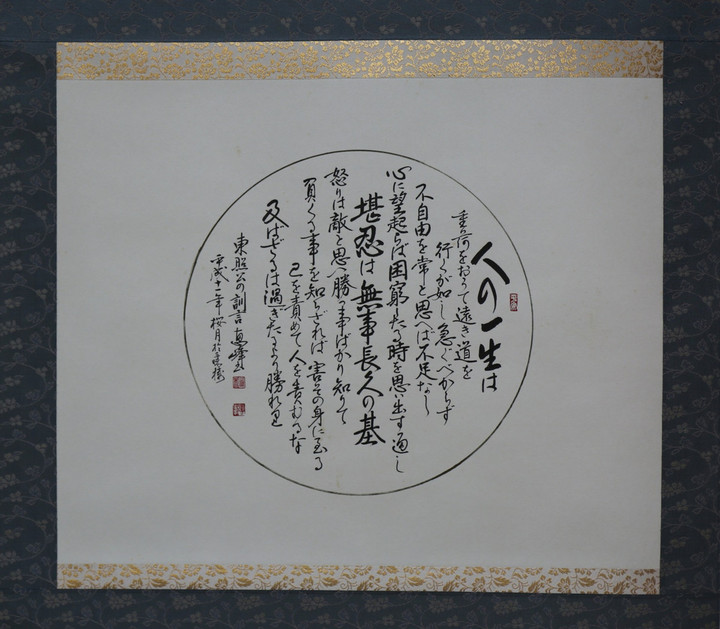 人の一生は
重荷をおうて遠き道を
行くが如し急ぐべからず
不自由を常と思へば不足なし
心に望起らば困窮したる時を思い出す通し
堪忍は無事長久の基
怒りは敵と思へ勝つ事ばかり知りて
負くる事を知らざれば害その身に至る
己を責めて人を責むるな
及ばざるは過ぎたるより勝れり
東照公の訓言
平成十一年桜月於